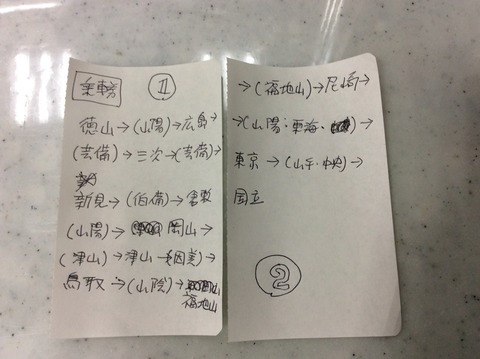 乗車券 ①
徳山→(山陽)→広島→
(芸備)→三次→(芸備)→
新見→(伯備)→倉敷
(山陽)→ 岡山→
(津山)→津山→(因美)→
鳥取→(山陰)→
福地山
→(福地山)→尼崎→
→(山陽・東海・)→
東京→(山手・中央)→
国立
②